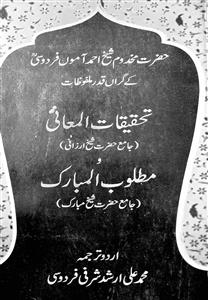 حضرت مخدوم شیخ احمد آموں فردوسیؒ
کے گراں قدر ملفوظات
تحقیقات المعانی
(جامع حضرت شیخ ارزانی)
و
مطلوب المبارک
(جامع حضرت شیخ مبارک)
اردو ترجمہ
محمد علی ارشد شرفی فردوسی